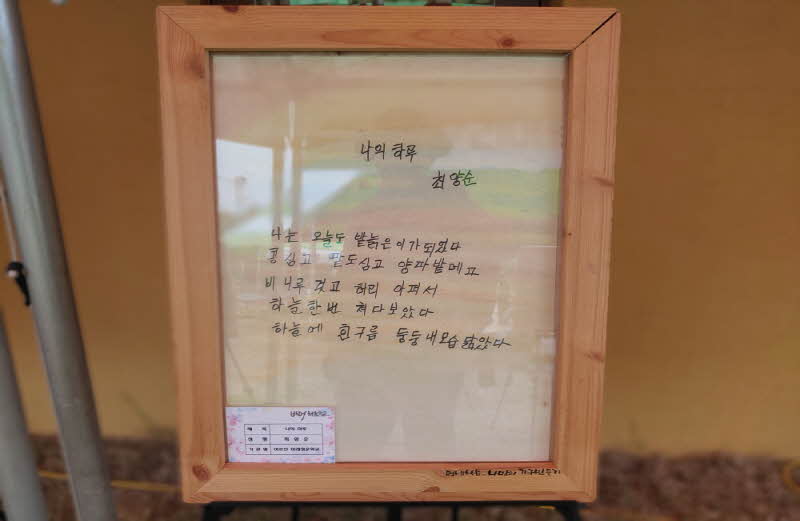 나의 하루
최양순
나는 오늘도 밭늙은이가되었다
콩심고 팥도심고 양파밭메고
비니루 걷고 허리 아파서
하늘한번 쳐다보았다
하늘에 흰구름 둥둥내모습닮았다
제 목 나의 하루
성 명 최 양 순
기 관 명